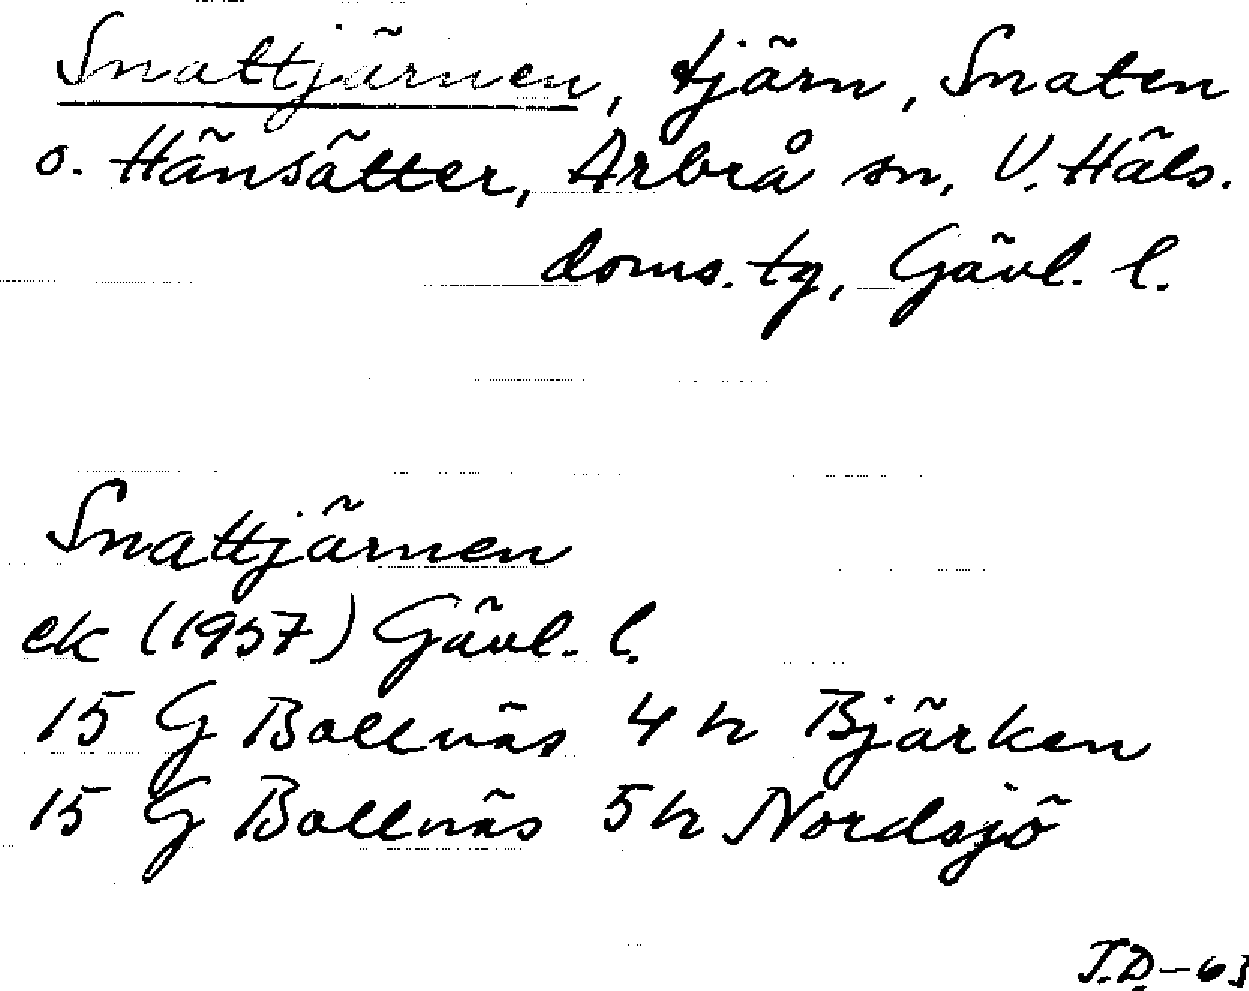 Snattjärnen, tjärn, Snaten
o. Hänsätter, Arbrå sn, V. Häls.
doms. tg, Gävl. l.
Snattjärnen
ek (1957) Gävl. l.
15 G Bollnäs 4 h Bjärken
15 G Bollnäs 5 h Nordsjö
J.D.-63